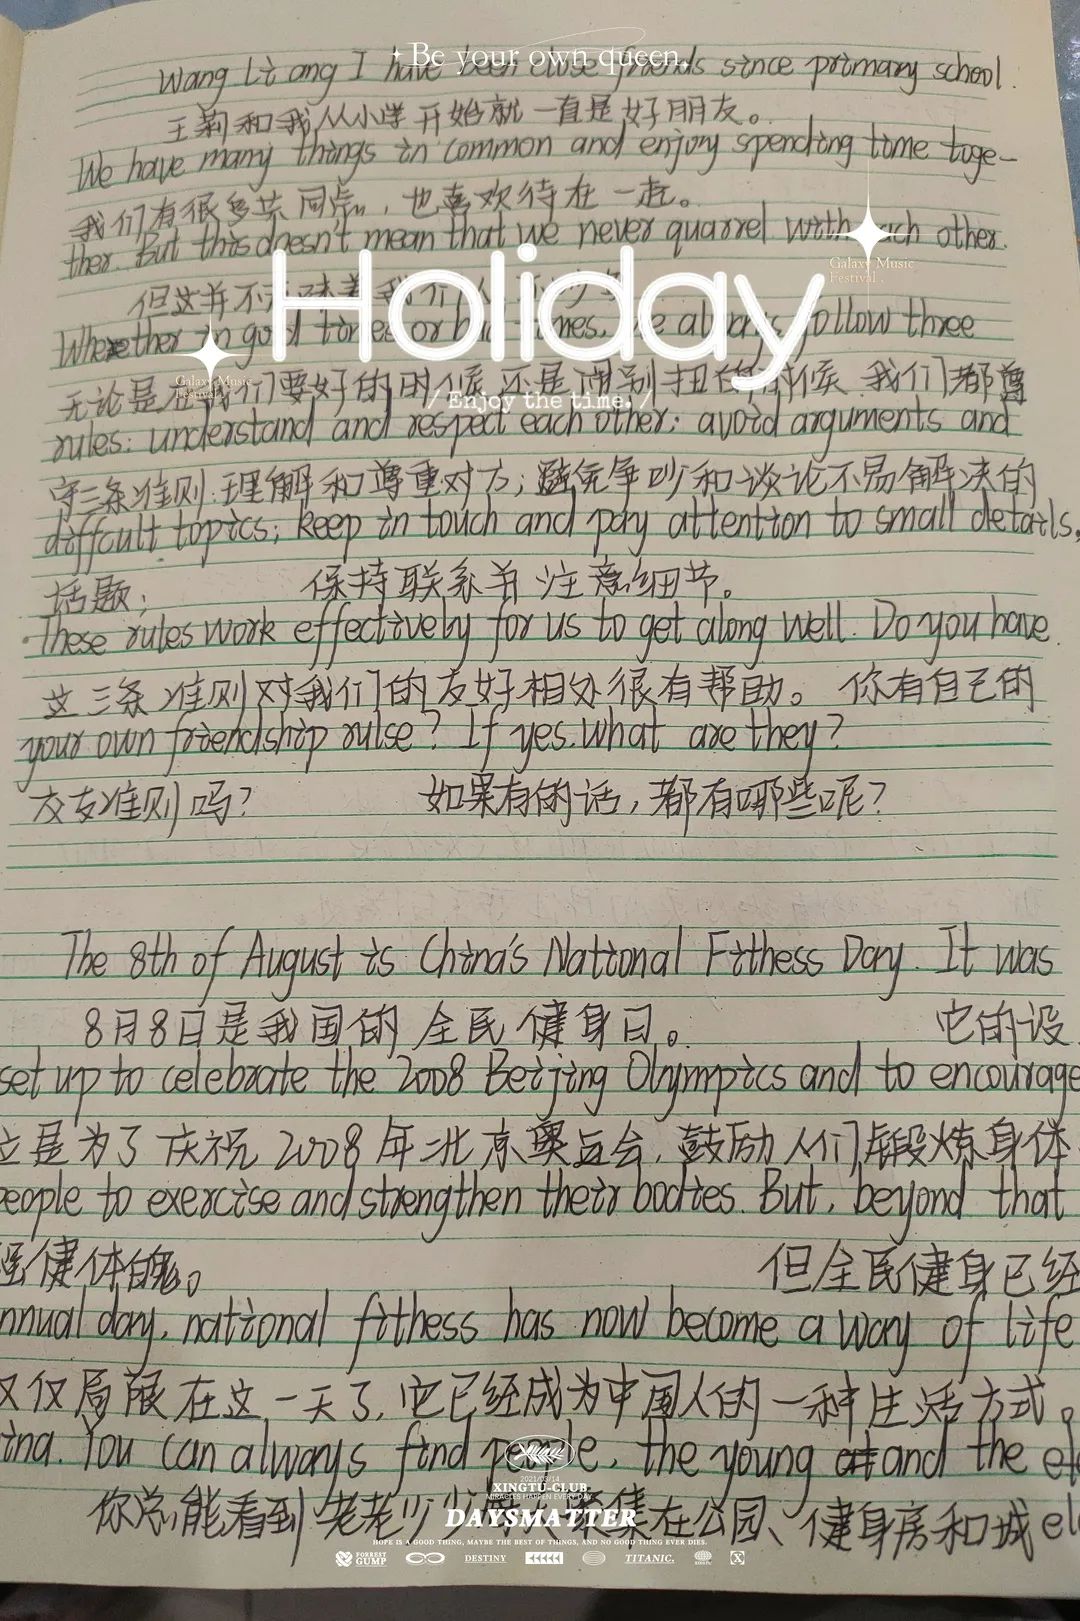 Be your own queen.
Wang Li and I have been close friends since primary school.
王莉和我从小学开始就一直是好朋友。
We have many things in common and enjoy spending time toge-
我们有很多共同点，也喜欢待在一起。
ther. But this doesn't mean that we never quarrel with each other.
Holiday
Galaxy Music
Festival .
但这并不意味着我们从不
Whether in good times or bad times, we always follow three
Galaxy Music
Festival .
无论是在我们要好的时候还是闹别扭的时候 我们都尊
/ Enjoy the time. /
rules: understand and respect each other; avoid arguments and
守三条准则:理解和尊重对方；避免争吵和谈论不易解决的
diffcult topics; keep in touch and pay attention to small details.
话题； 保持联系并注意细节。
These rules work effectively for us to get along well. Do you have
这三条准则对我们的友好相处很有帮助。 你有自己的
your own friendship rulse? If yes. what are they?
交友准则吗? 如果有的话，都有哪些呢?
The 8th of August is China's National Fithess Day. It was
8月8日是我国的全民健身日。 它的设
set up to celebrate the 2008 Beijing Olympics and to encourage
立是为了庆祝2008年北京奥运会，鼓励人们锻炼身体
people to exercise and strengthen their bodies. But, beyond that
强健体魄。 但全民健身已经
nnual day, national fithess has now become a way of life
仅仅局限在这一天了，它已经成为中国人的一种生活方式。
ina. You can always find people, the young and the el
你总能看到老老少少 聚集在公园、健身房和城
2021/03/14
XINGTU-CLUB
MIRACLES HAPPEN EVERY DAY
DAYSMATTER
HOPE IS A GOOD THING, MAYBE THE BEST OF THINGS, AND NO GOOD THING EVER DIES.
FORREST GUMP DESTINY TITANIC.